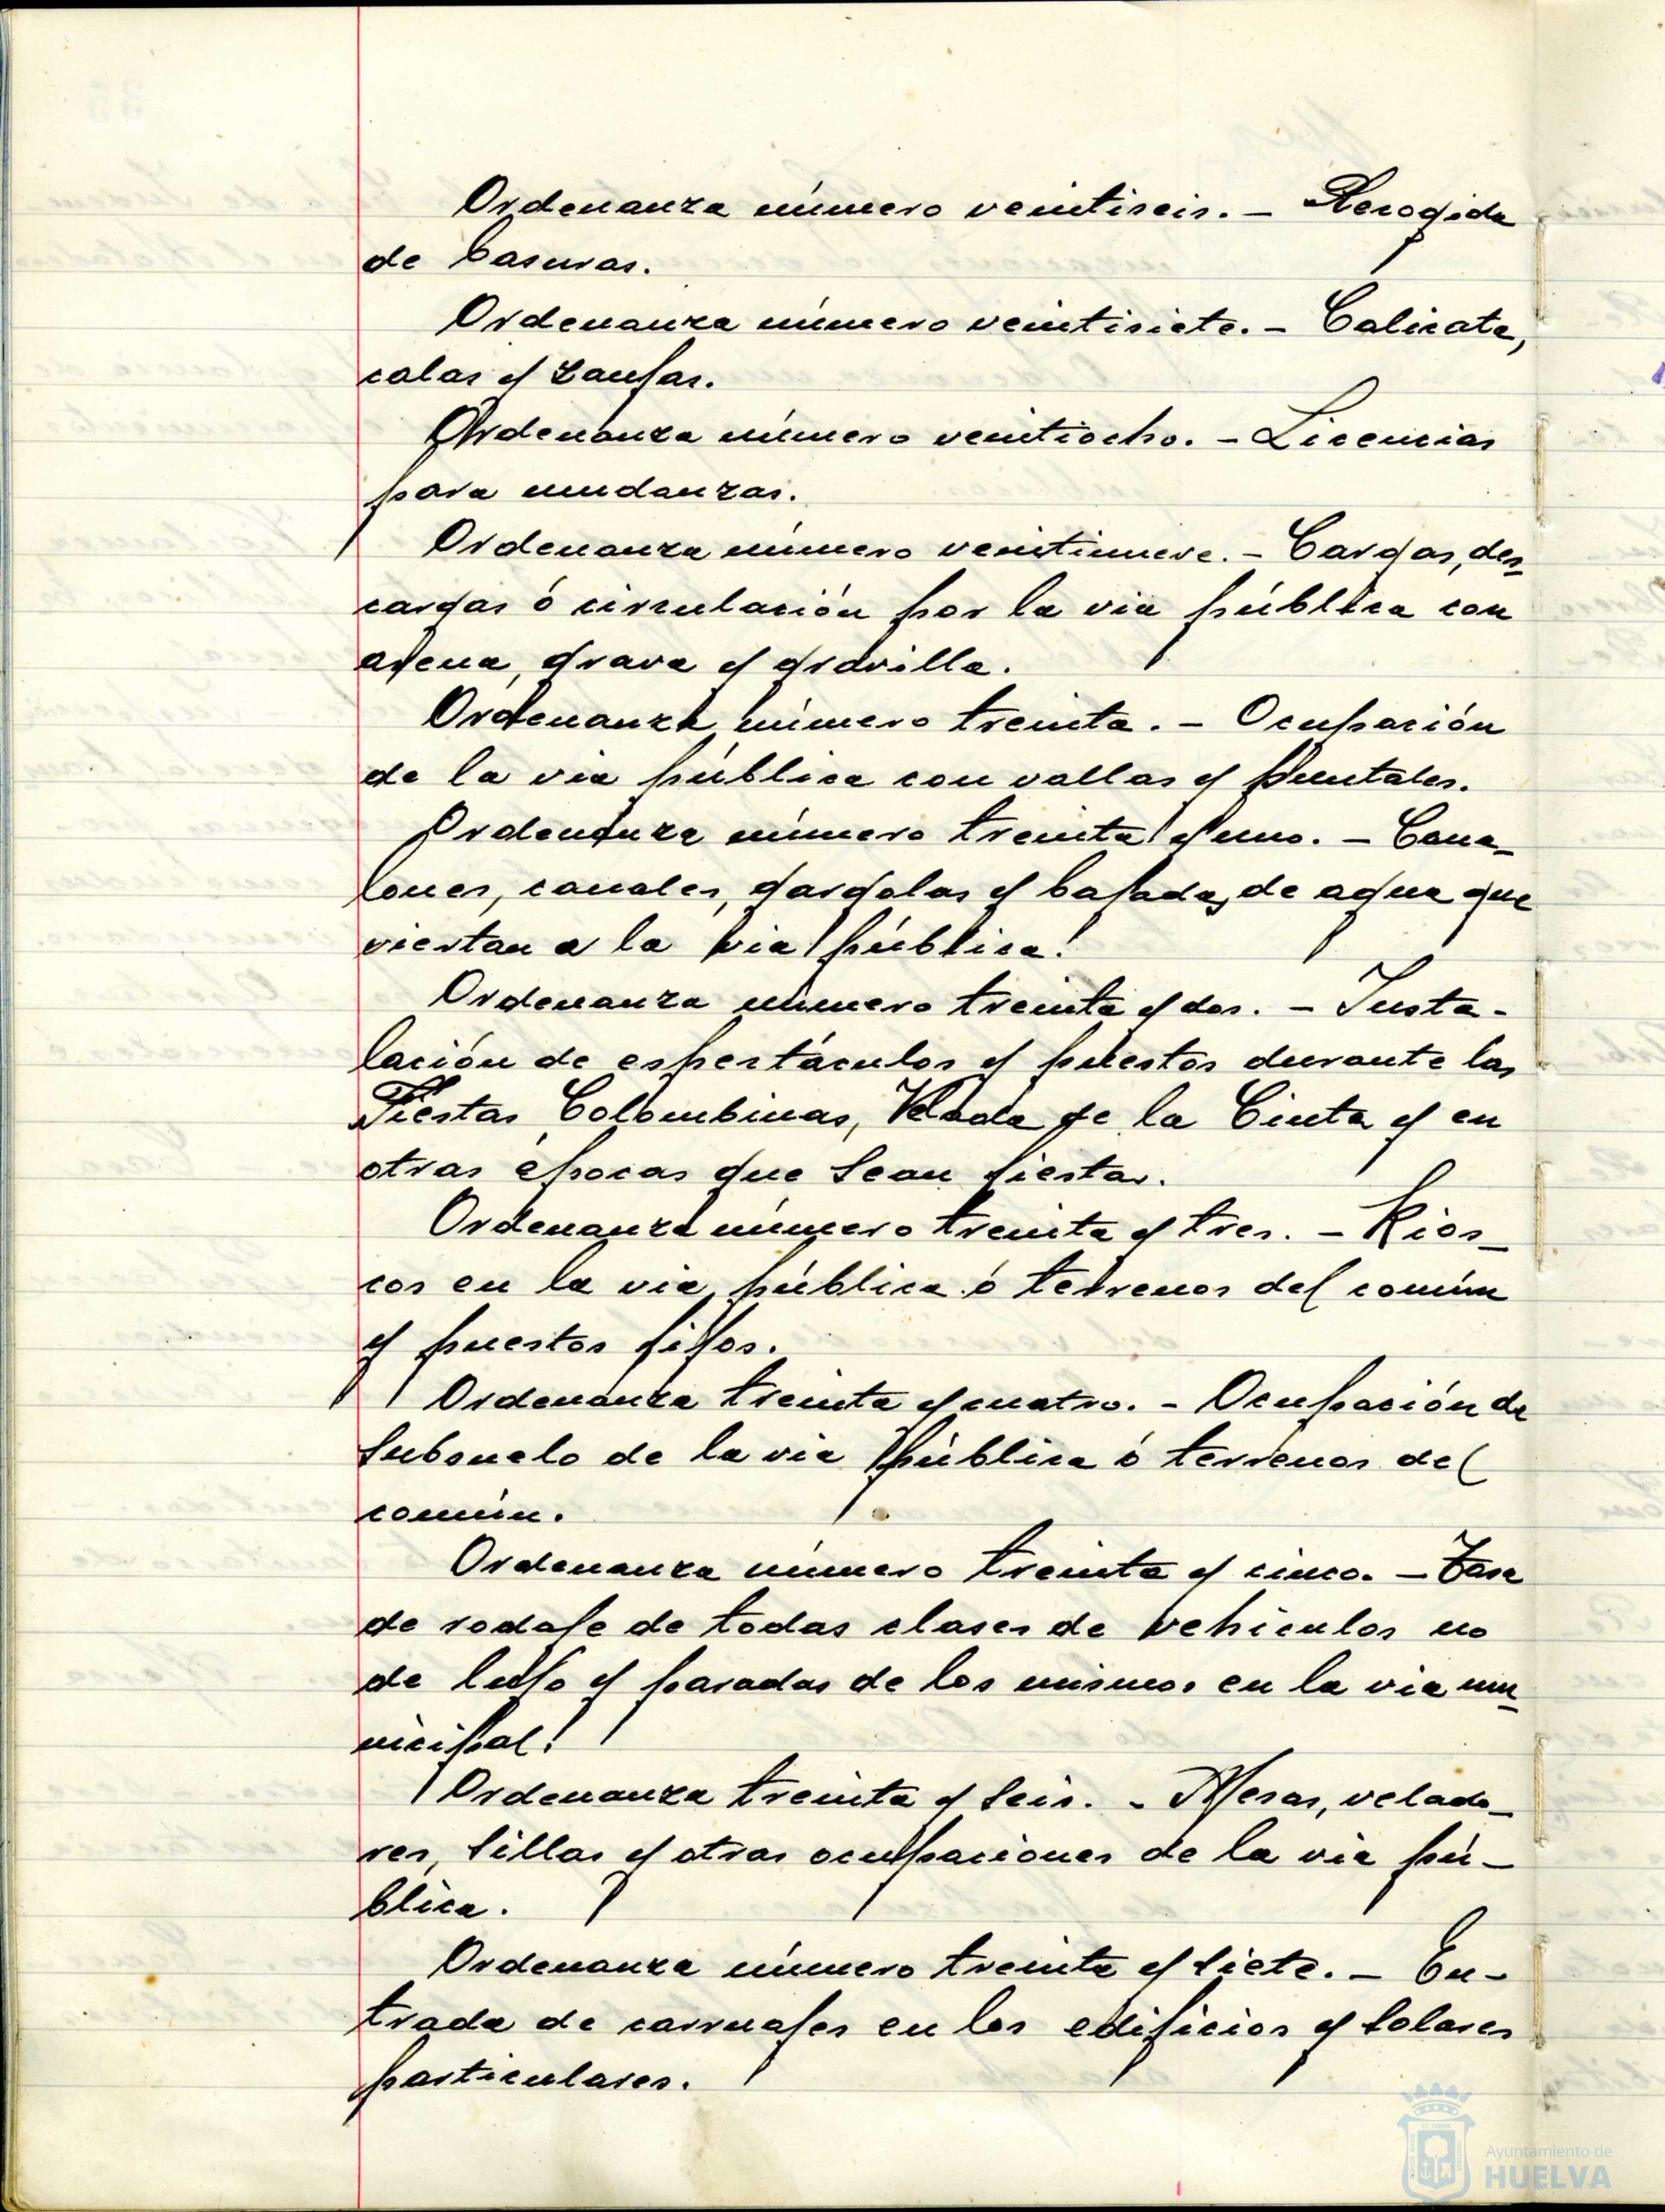 Ordenanza número veintiseis. — Recogida
de basuras.
Ordenanza número veintisiete. — Calicata,
calas y zanjas.
Ordenanza número veintiocho. — Licencias
para mudanzas.
Ordenanza número veintinueve. — Cargas, des-
cargas ó circulación por la via pública con
arena, grava y gravilla.
Ordenanza número treinta. — Ocupación
de la via pública con vallas y puntales.
Ordenanza número treinta y uno. — Cana-
lones, canales, gargolas y bajadas de agua que
viertan a la via pública.
Ordenanza número treinta y dos. — Insta-
lación de espectáculos y puestos durante las
Fiestas Colombinas, Velada de la Cinta y en
otras épocas que sean fiestas.
Ordenanza número treinta y tres. — Kios-
cos en la via pública ó terrenos del común
y puestos fijos.
Ordenanza treinta y cuatro. — Ocupación de
subsuelo de la via pública ó terrenos del
común.
Ordenanza número treinta y cinco. — Tasa
de rodaje de todas clases de vehiculos no
de lujo y paradas de los mismos en la via mu-
nicipal.
Ordenanza treinta y seis. — Mesas, velado-
res, sillas y otras ocupaciones de la via pú-
blica.
Ordenanza número treinta y siete. — En-
trada de carruajes en los edificios y solares
particulares.
Ayuntamiento de
HUELVA